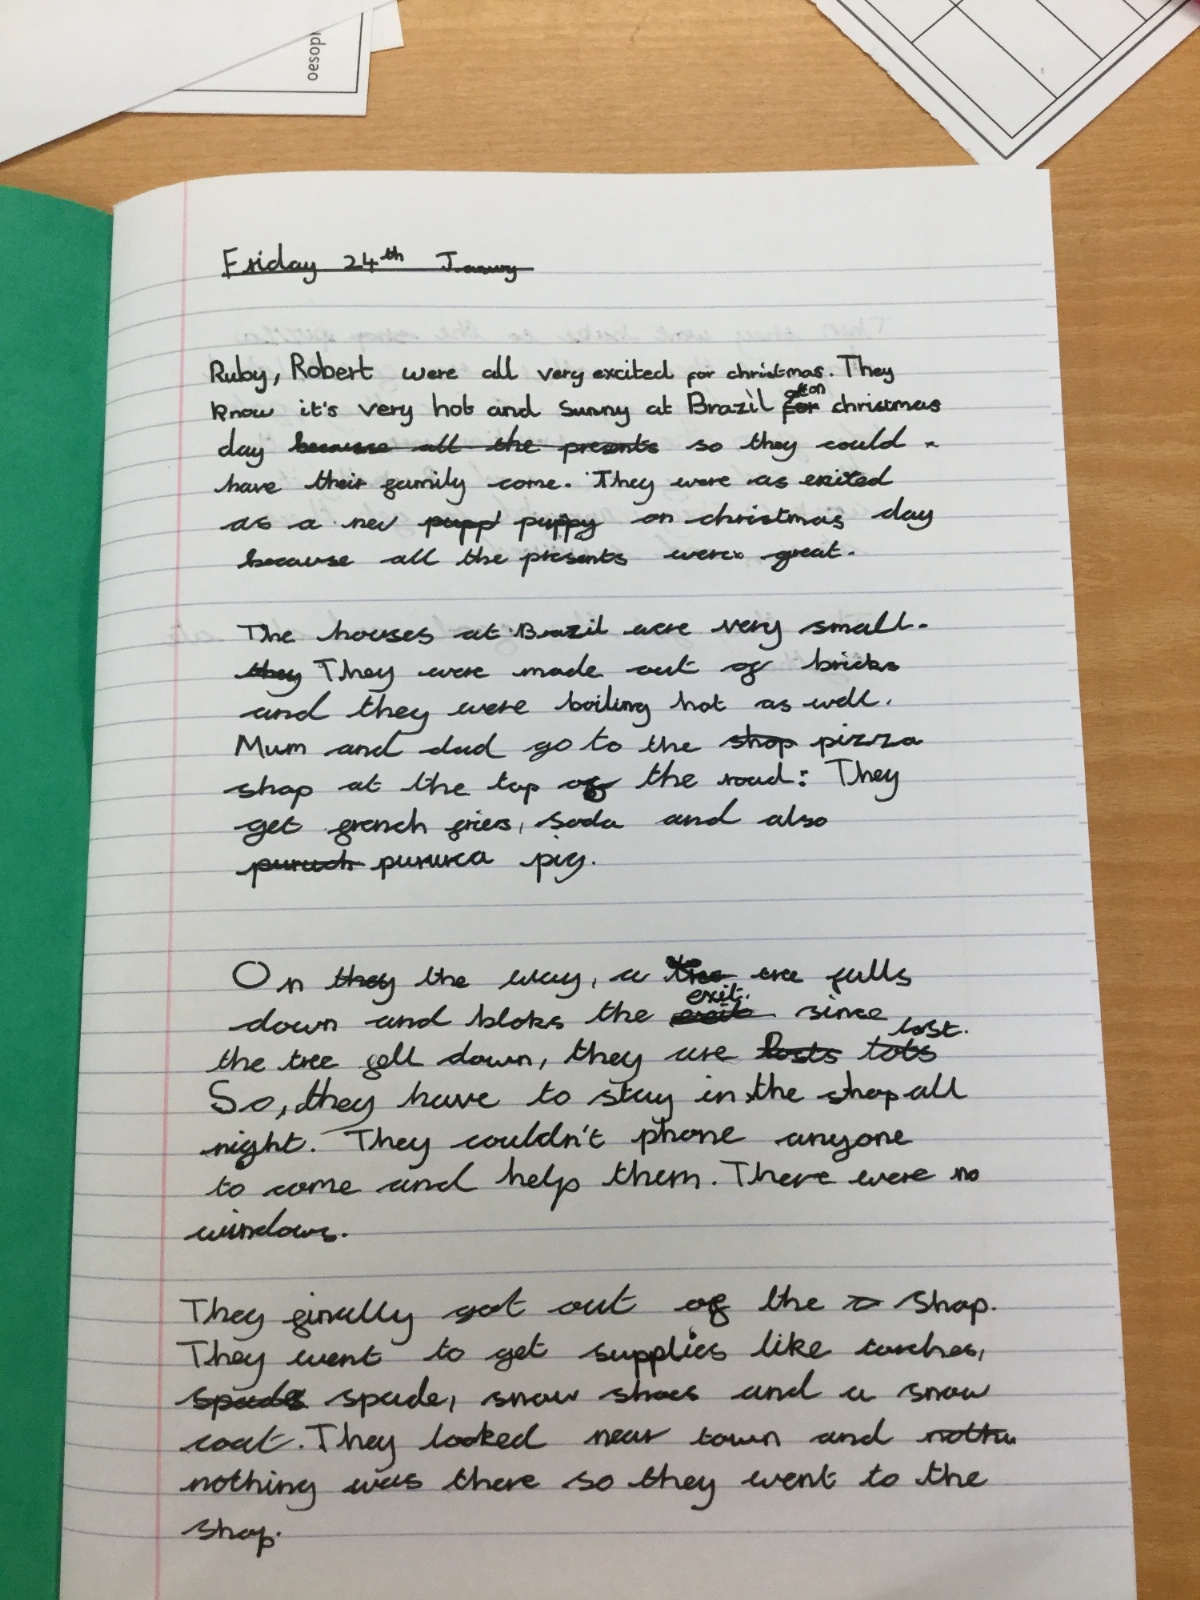 oesoph
Friday 24th January
Ruby, Robert were all very excited for christmas. They
know it's very hot and sunny at Brazil for on christmas
day because all the presents so they could
have their family come. They were as exited
as a new pupp puppy on christmas day
because all the presents were great.
The houses at Brazil were very small.
they They were made out of bricks
and they were boiling hot as well.
Mum and dad go to the shop pizza
shop at the top of the road: They
get french fries, soda and also
puruch pururca pig.
On they the way, a tree tree falls
down and bloks the exit. since
the tree fell down, they are losts lots lost.
So, they have to stay in the shop all
night. They couldn't phone anyone
to come and help them. There were no
windows.
They finally got out of the shop.
They went to get supplies like torches,
spade spade, snow shoes and a snow
coat. They looked near town and nothu
nothing was there so they went to the
shop.